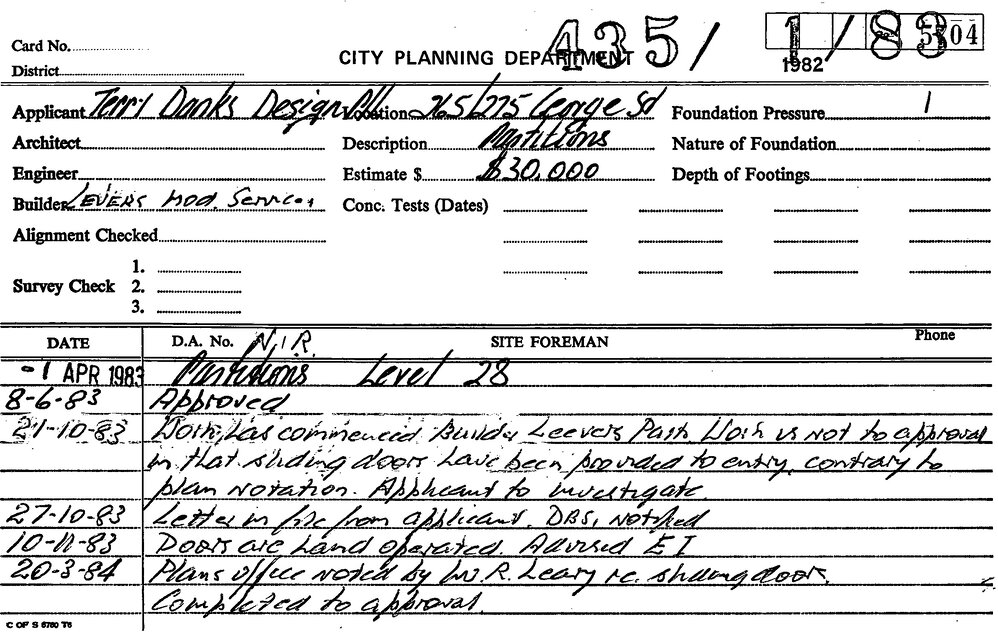 435/ 1/83
5504
1982
Card No.
CITY PLANNING DEPARTMENT
District
Applicant Terri Danks Design P/L Location 265/275 George St Foundation Pressure 1
Architect Description Partitions Nature of Foundation
Engineer Estimate $ $30,000 Depth of Footings
Builder LEVERS Mod. Services Conc. Tests (Dates)
Alignment Checked
1.
Survey Check 2.
3.
DATE D.A. No. N.I.R. SITE FOREMAN Phone
-1 APR 1983 Partitions Level 28
8-6-83 Approved
21-10-83 Work has commenced. Builder Leevers Work is not to approval
in that sliding doors have been provided to entry, contrary to
plan notation. Applicant to investigate.
27-10-83 Letter in file from applicant. DBS, notified
10-11-83 Doors are hand operated. Advised E I
20-3-84 Plans office noted by R. Leary re. sliding door.
Completed to approval.
C OF S 6760 T6